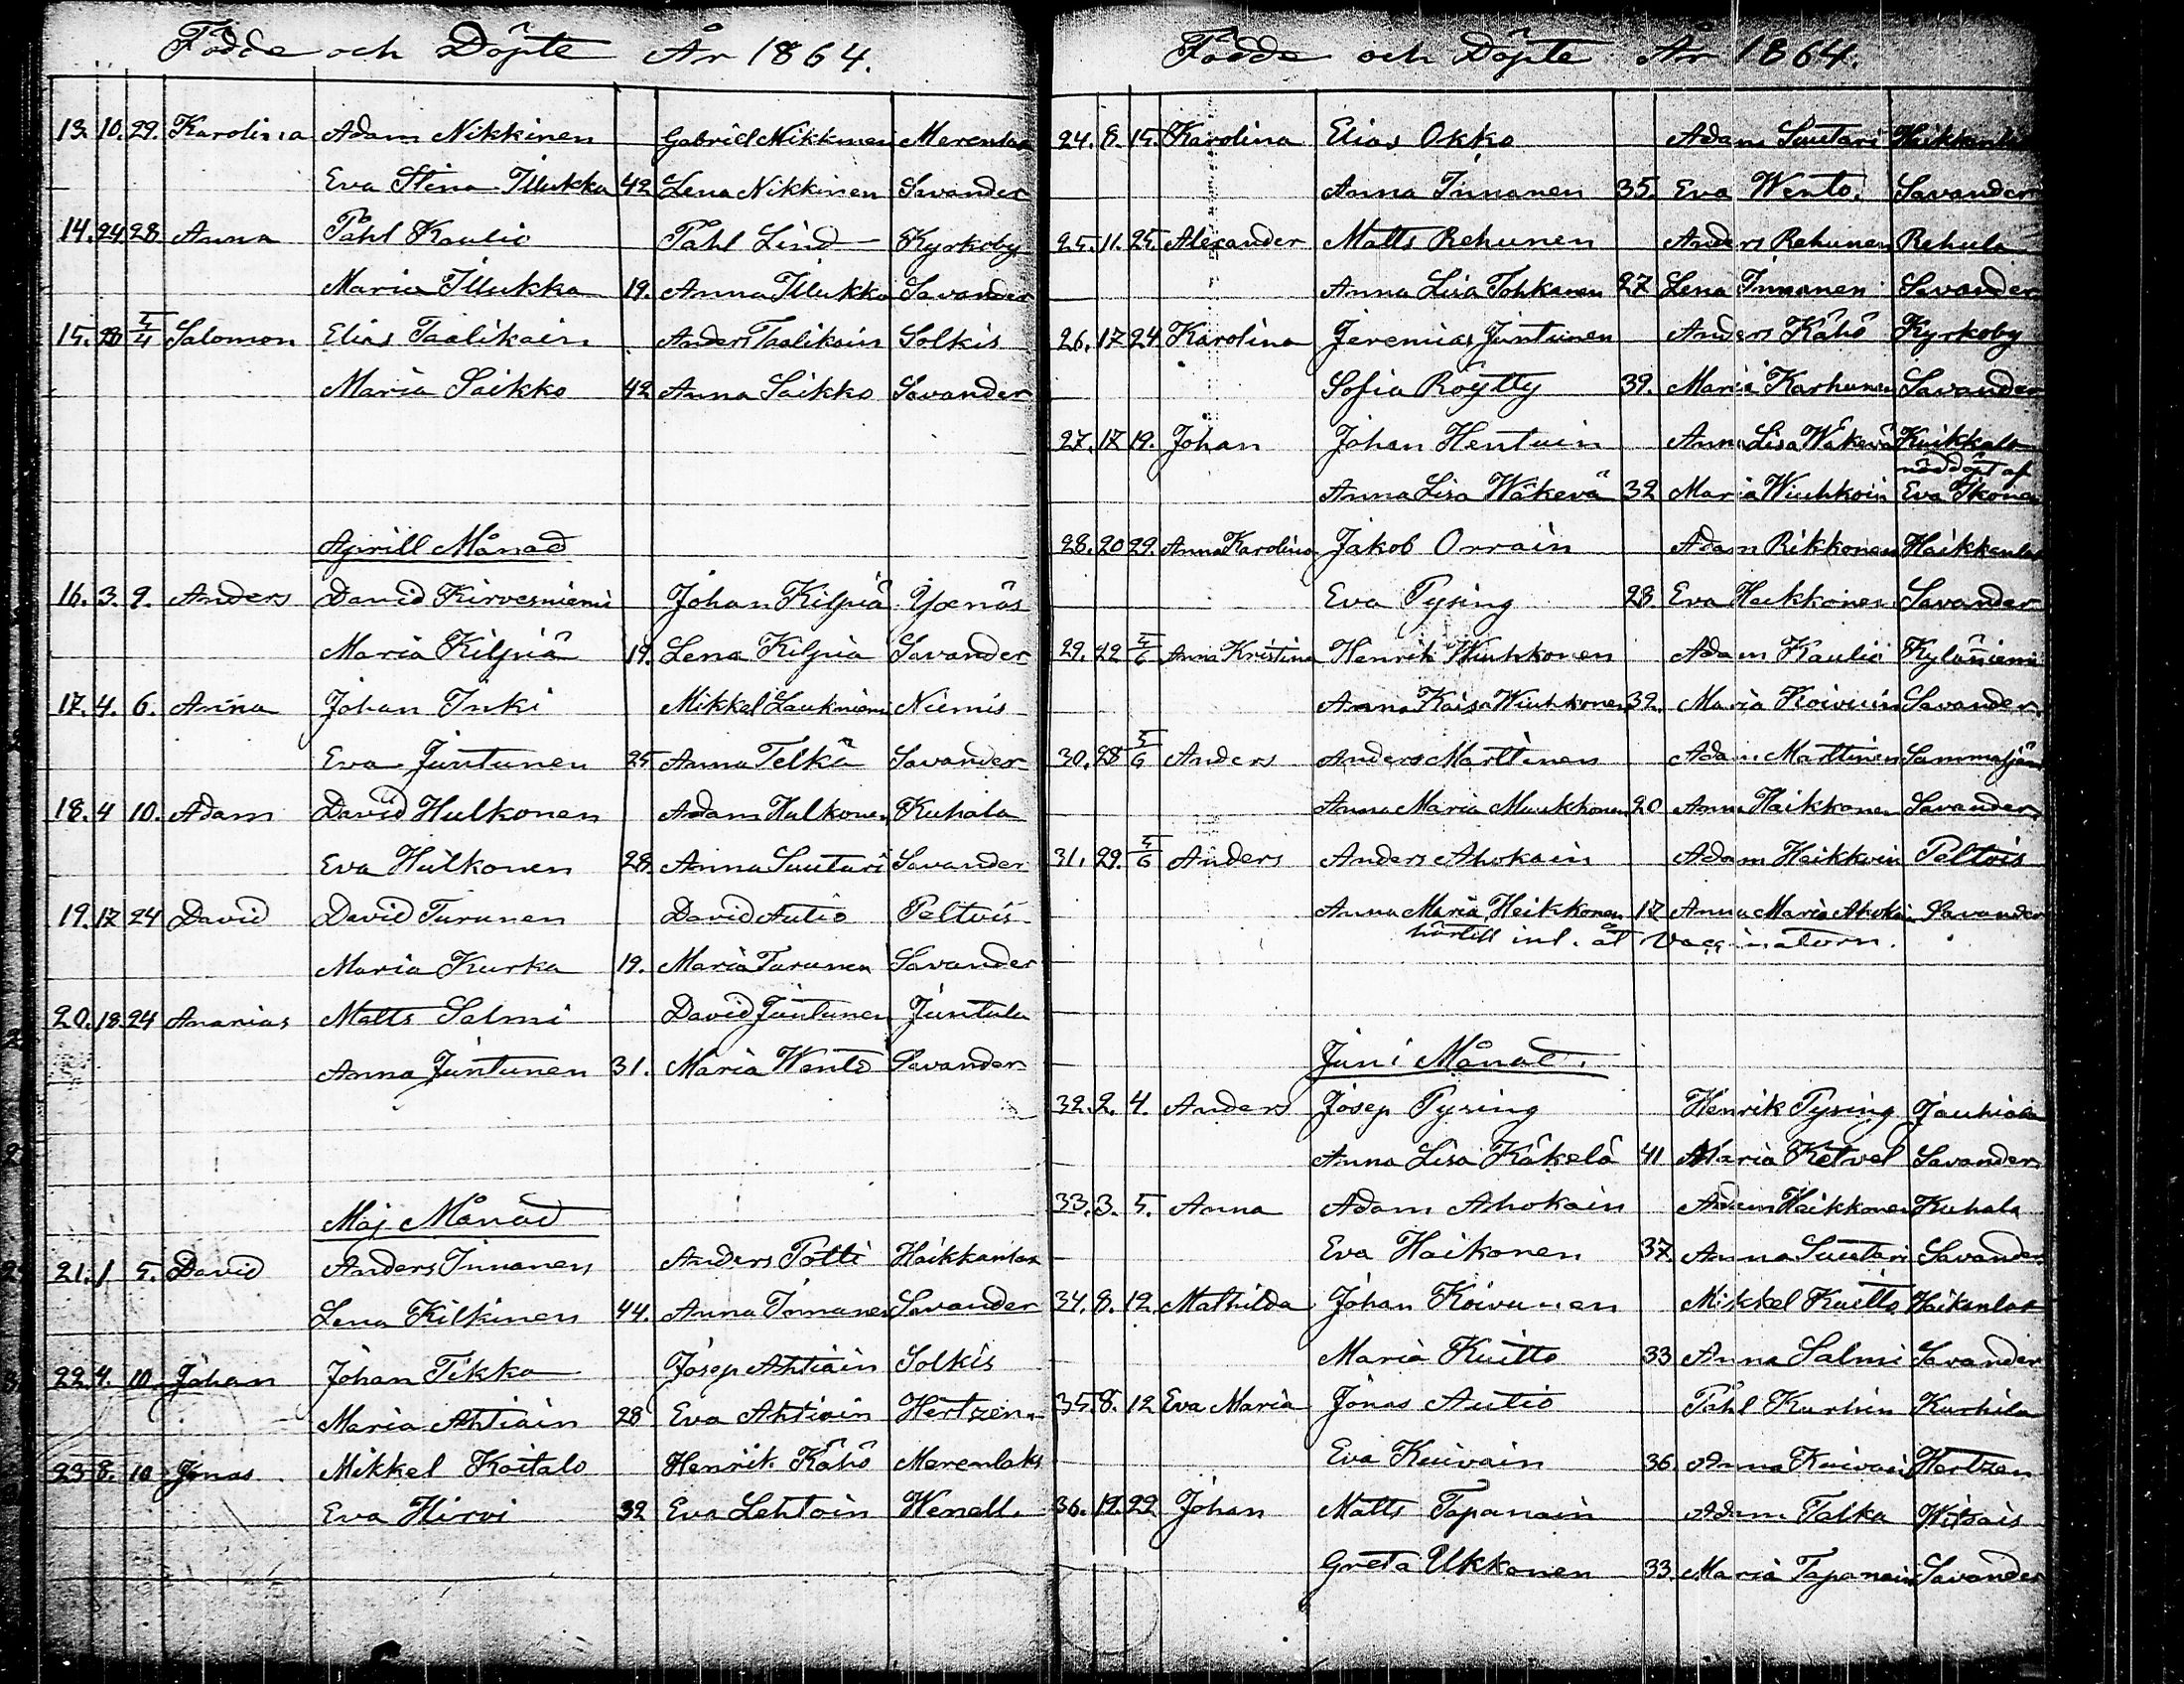 Födde och Döpte År 1864.
13. 10. 29. Karolina Adam Nikkinen Gabriel Nikkinen Merenlax
Eva Stina Illukka 42 Lena Nikkinen Savander
14. 24 28 Anna Påhl Kaulio Påhl Lind Kyrkoby
Maria Illukka 19. Anna Illukka Savander
15. 28 5/4 Salomon Elias Taalikain Anders Taalikain Solkis
Maria Saikko 42 Anna Saikko Savander
Aprill Månad
16. 3. 9. Anders David Kirvesniemi Johan Kilpiä Yxenäs
Maria Kilpiä 19. Lena Kilpiä Savander
17. 4. 6. Anna Johan Inki Mikkel Laukniemi Niemis
Eva Juntunen 25 Anna Telkä Savander
18. 4 10. Adam David Hulkonen Adam Hulkonen Kuhala
Eva Hulkonen 28 Anna Suutari Savander
19. 17 24 David David Turunen David Autio Peltois
Maria Kurka 19. Maria Turunen Savander
20. 18. 24 Ananias Matts Salmi David Juntunen Juntula
Anna Juntunen 31. Maria Wento Savander
Maj Månad
21. 1 5. David Anders Innanen Anders Potti Haikkanlax
Lena Kilkinen 44. Anna Innanen Savander
22. 4. 10. Johan Johan Tikka Josep Ahtiain Solkis
Maria Ahtiain 28 Eva Ahtiain Hertzen.
23 8. 10 Jonas. Mikkel Koitalo Henrik Kähö Merenlaks
Eva Hirvi 32 Eva Lehtoin Wenell.
Födde och Döpte År 1864.
24. 8. 15. Karolina Elias Okko Adam Suutari
Anna Innanen 35. Eva Wento. Savander
25. 11. 25. Alexander Matts Rehunen Anders Rehunen Rehula
Anna Lisa Tohkanen 27 Lena Innanen Savander
26. 17 24 Karolina Jeremias Juntunen Anders Kähö Kyrkoby
Sofia Röytty 39. Maria Karhunen Savander
27. 17 19. Johan Johan Hentuin Anna Lisa Wäkevä Kuikkala
nöddöpt af
Anna Lisa Wäkevä 32 Maria Wiuhkoin Eva Ikonen
28. 20 29. Anna Karolina Jakob Orrain Adam Rikkonen Haikkanlax
Eva Pysing 28 Eva Heikkonen Savander
29. 22 5/6 Anna Kristina Henrik Wiuhkonen Adam Kaulio Kyläniemi
Anna Kaisa Wiuhkonen 32. Maria Koivuin Savander.
30. 28 5/6 Anders Anders Marttinen Adam Marttinen
Anna Maria Muukkonen 20 Anna Haikkonen Savander
31. 29. 5/6 Anders Anders Ahokain Adam Heikkoin Peltois
Anna Maria Heikkonen 17 Anna Maria Ahokain Savander
härtill inl. åt Vaccinatorn.
Juni Månad.
32. 2. 4. Anders Josep Pysing Henrik Pysing Jauhiala
Anna Lisa Käkelä 41 Maria Ketvel Savander
33. 3. 5. Anna Adam Ahokain Adam Heikkonen Kuhala
Eva Haikonen 37. Anna Suutari Savander.
34. 8. 12. Mathilda Johan Koivunen Mikkel Kuitto Haikanlax
Maria Kuitto 33 Anna Salmi Savander
35. 8. 12 Eva Maria Jonas Autio Påhl Kurhin Kurhila
Eva Kuivain 36. Anna Kuivain Hertzen
36. 12. 22 Johan Matts Tapanain Adam Talka Witsais
Greta Ukkonen 33. Maria Tapanain Savander